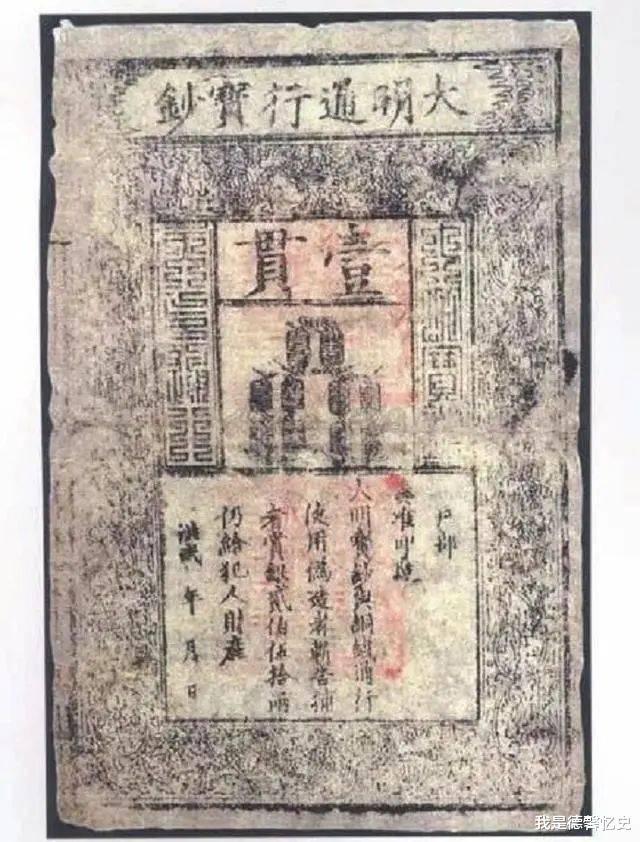 大明通行寶鈔
壹貫
户部
奏准印造
大明寶鈔與銅錢通行
使用偽造者斬告捕
者賞銀貳佰伍拾兩
仍給犯人財產
洪武 年 月 日
我是德馨忆史